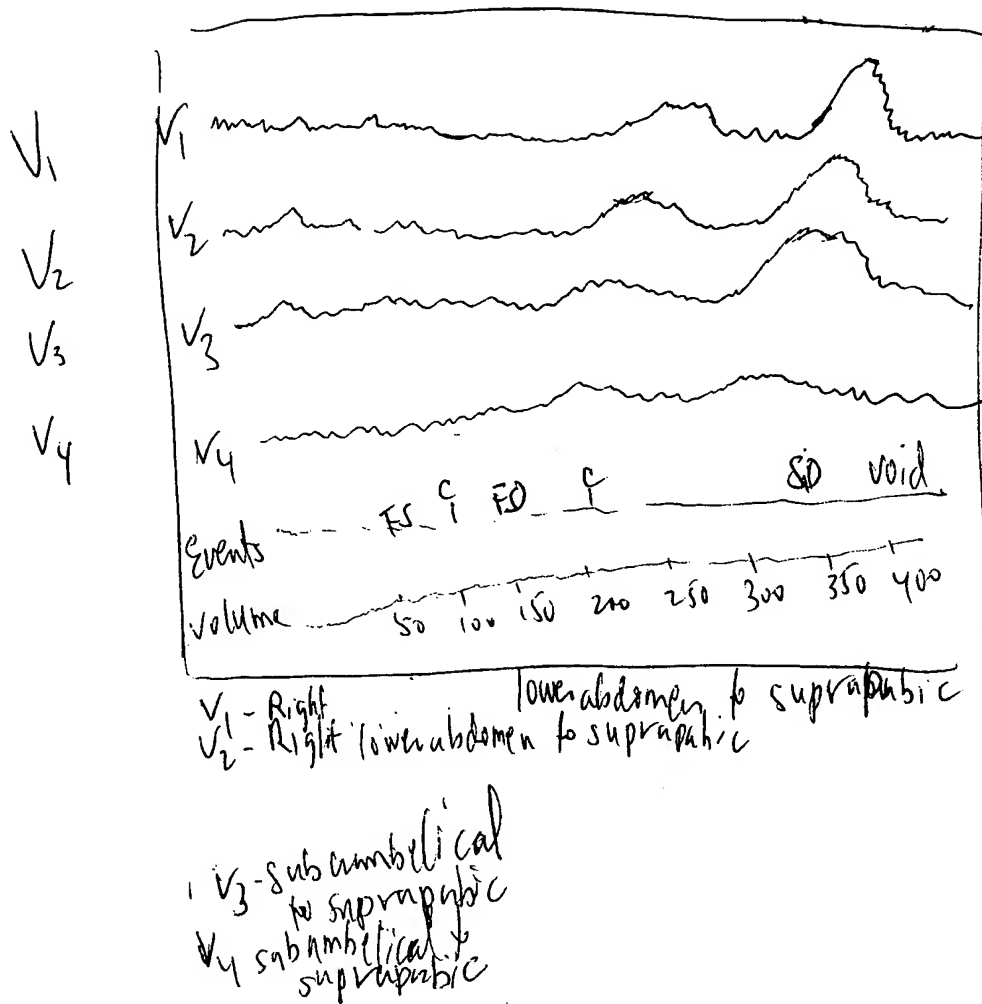 V1
V2
V3
V4
V1
V2
V3
V4
Events FS C FD C SD void
Volume 50 100 150 200 250 300 350 400
V1 - Right lower abdomen to suprapubic
V2 - Right lower abdomen to suprapubic
V3 - subumbelical
to suprapubic
V4 subumbelical to
suprapubic